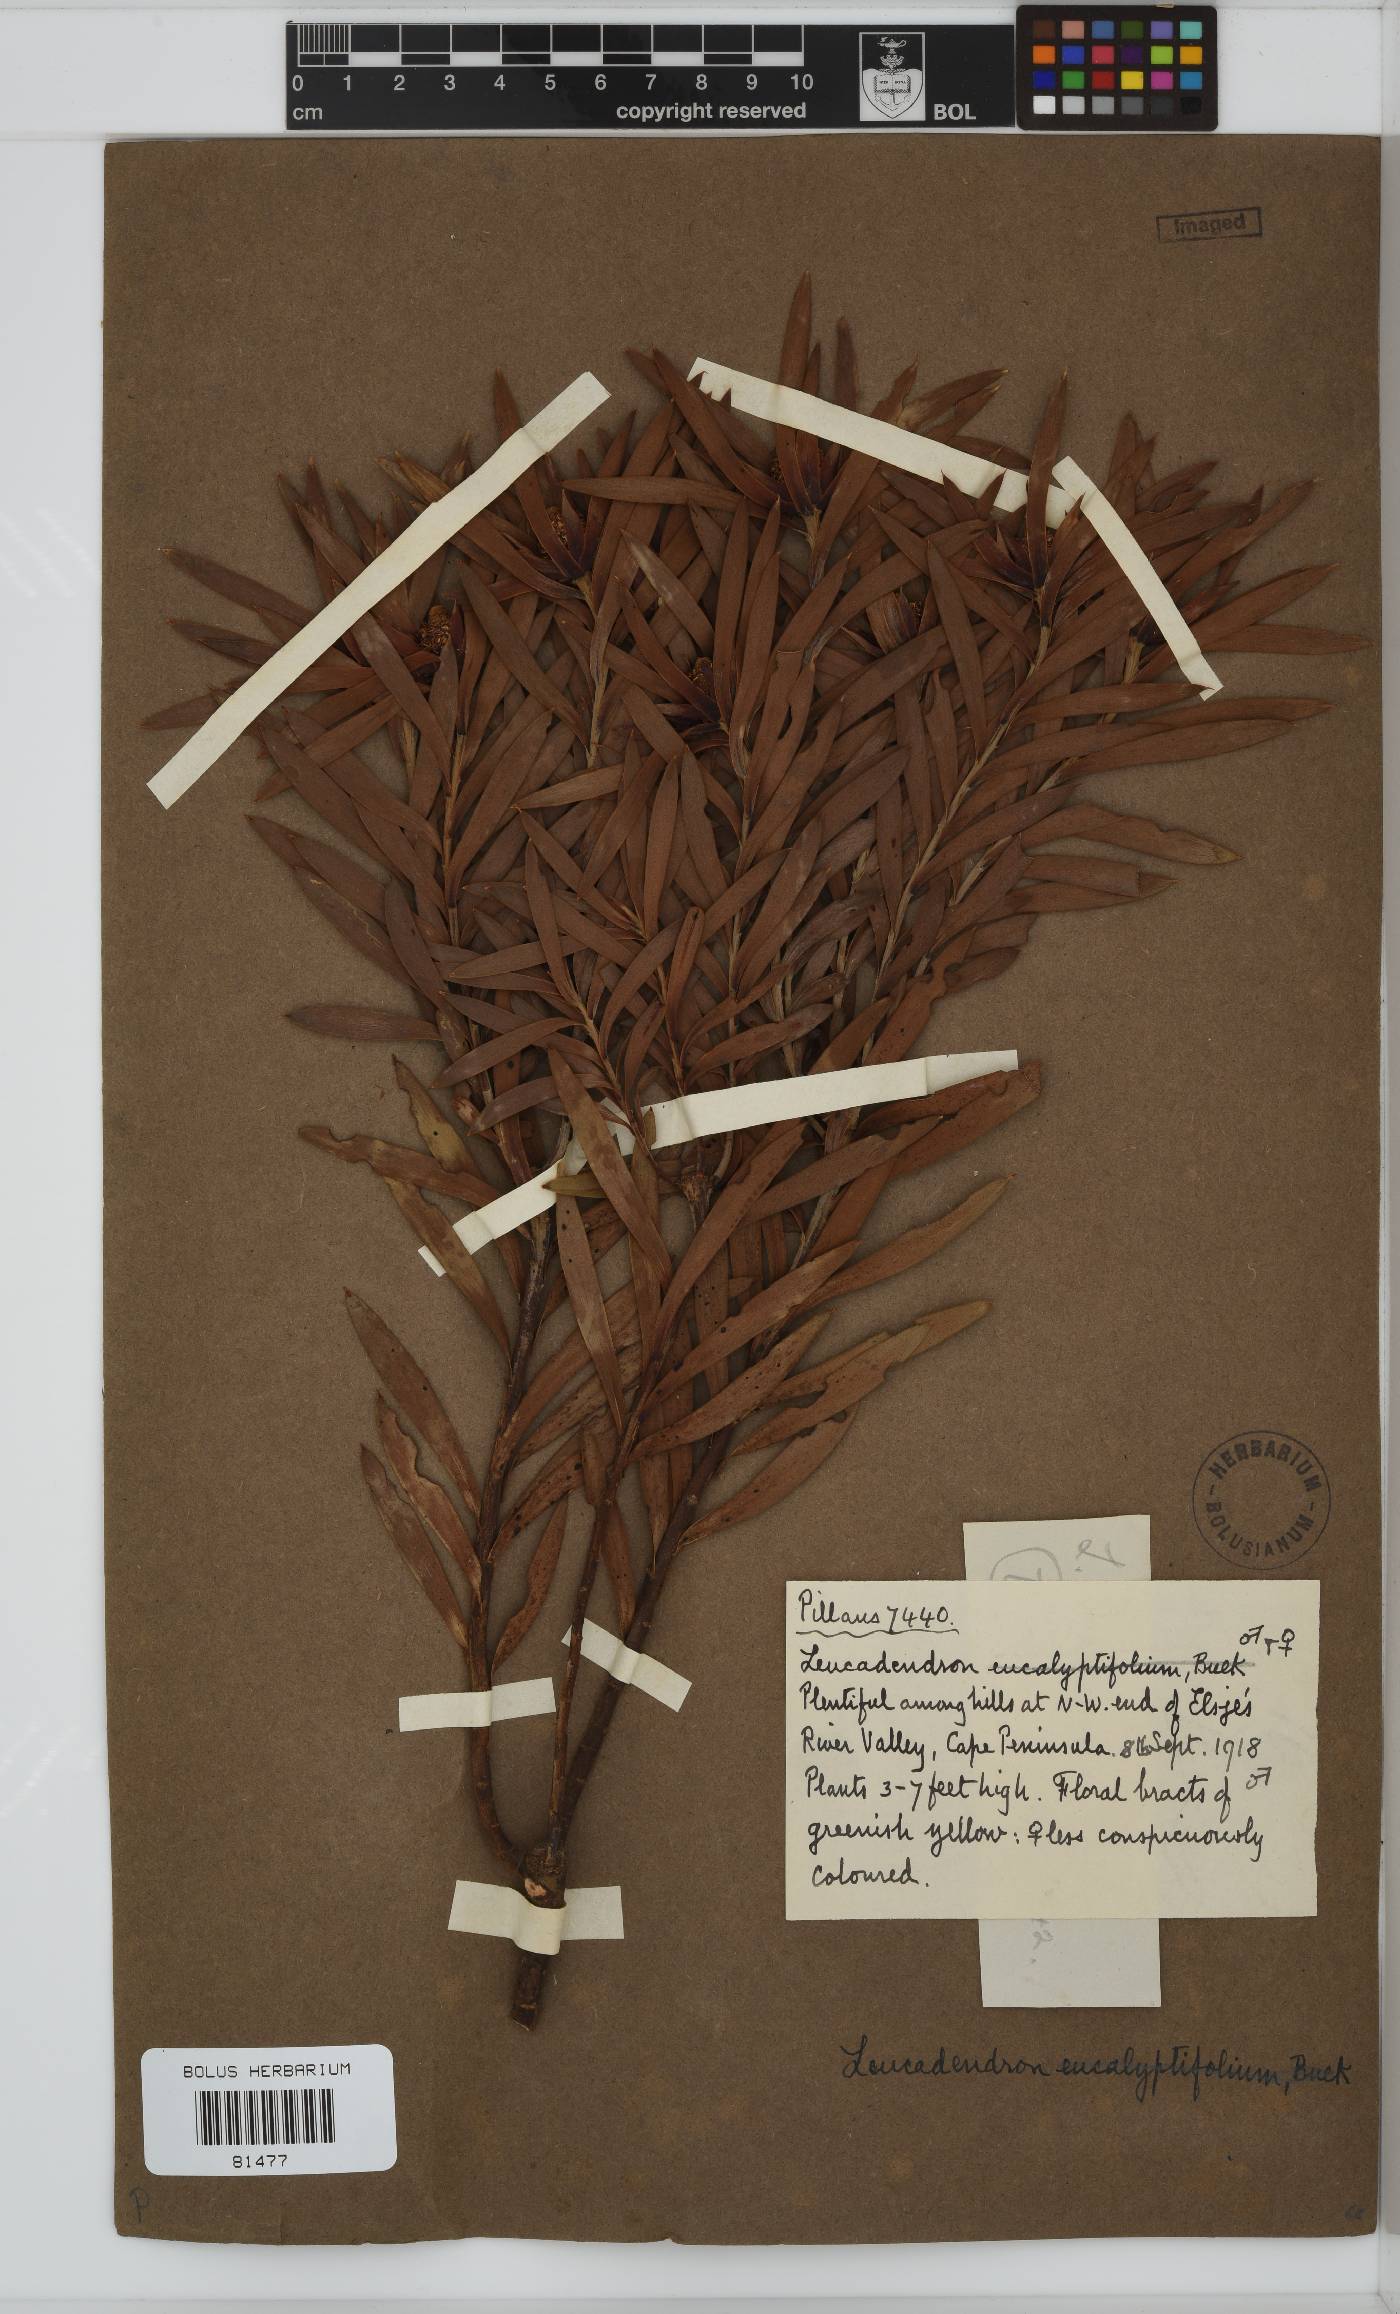 0 1 2 3 4 5 6 7 8 9 10
cm copyright reserved BOL
Imaged
HERBARIUM
BOLUSIANUM
Pillans 7440.
Leucadendron eucalyptifolium, Buek ♂ + ♀
Plentiful among hills at N-W. end of Elsje's
River Valley, Cape Peninsula. Sept. 1918
Plants 3-7 feet high. Floral bracts of ♂
greenish yellow: ♀ less conspicuously
coloured.
Leucadendron eucalyptifolium, Buek
BOLUS HERBARIUM
81477
P